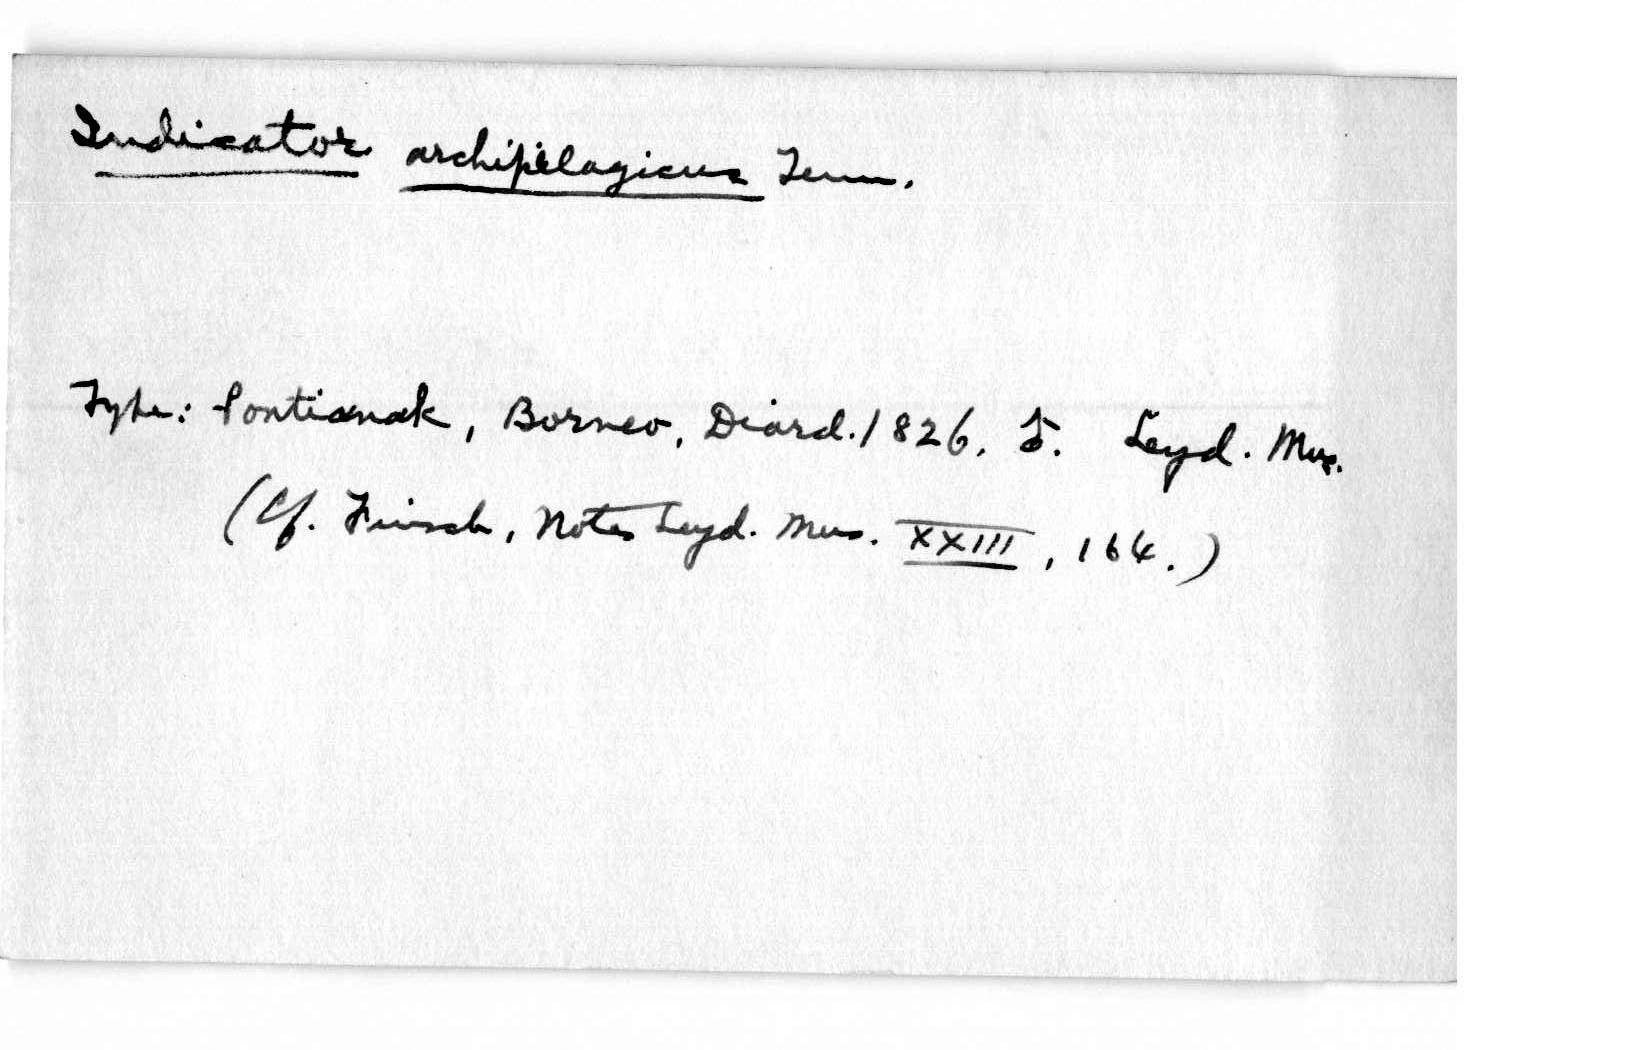 Indicator archipelagicus Temm.
Type: Pontianak, Borneo, Diard. 1826, ♂. Leyd. Mus.
(Cf. Finsch, Notes Leyd. Mus. XXIII, 164.)